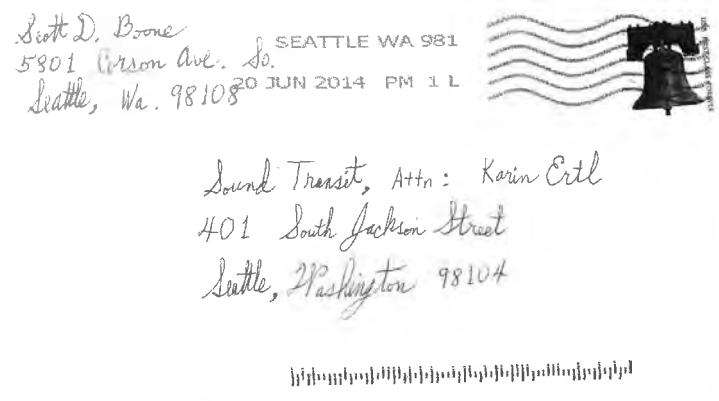 Scott D. Boone
5801 Corson Ave. So.
Seattle, Wa. 98108
SEATTLE WA 981
20 JUN 2014 PM 1 L
Sound Transit, Attn: Karin Ertl
401 South Jackson Street
Seattle, Washington 98104